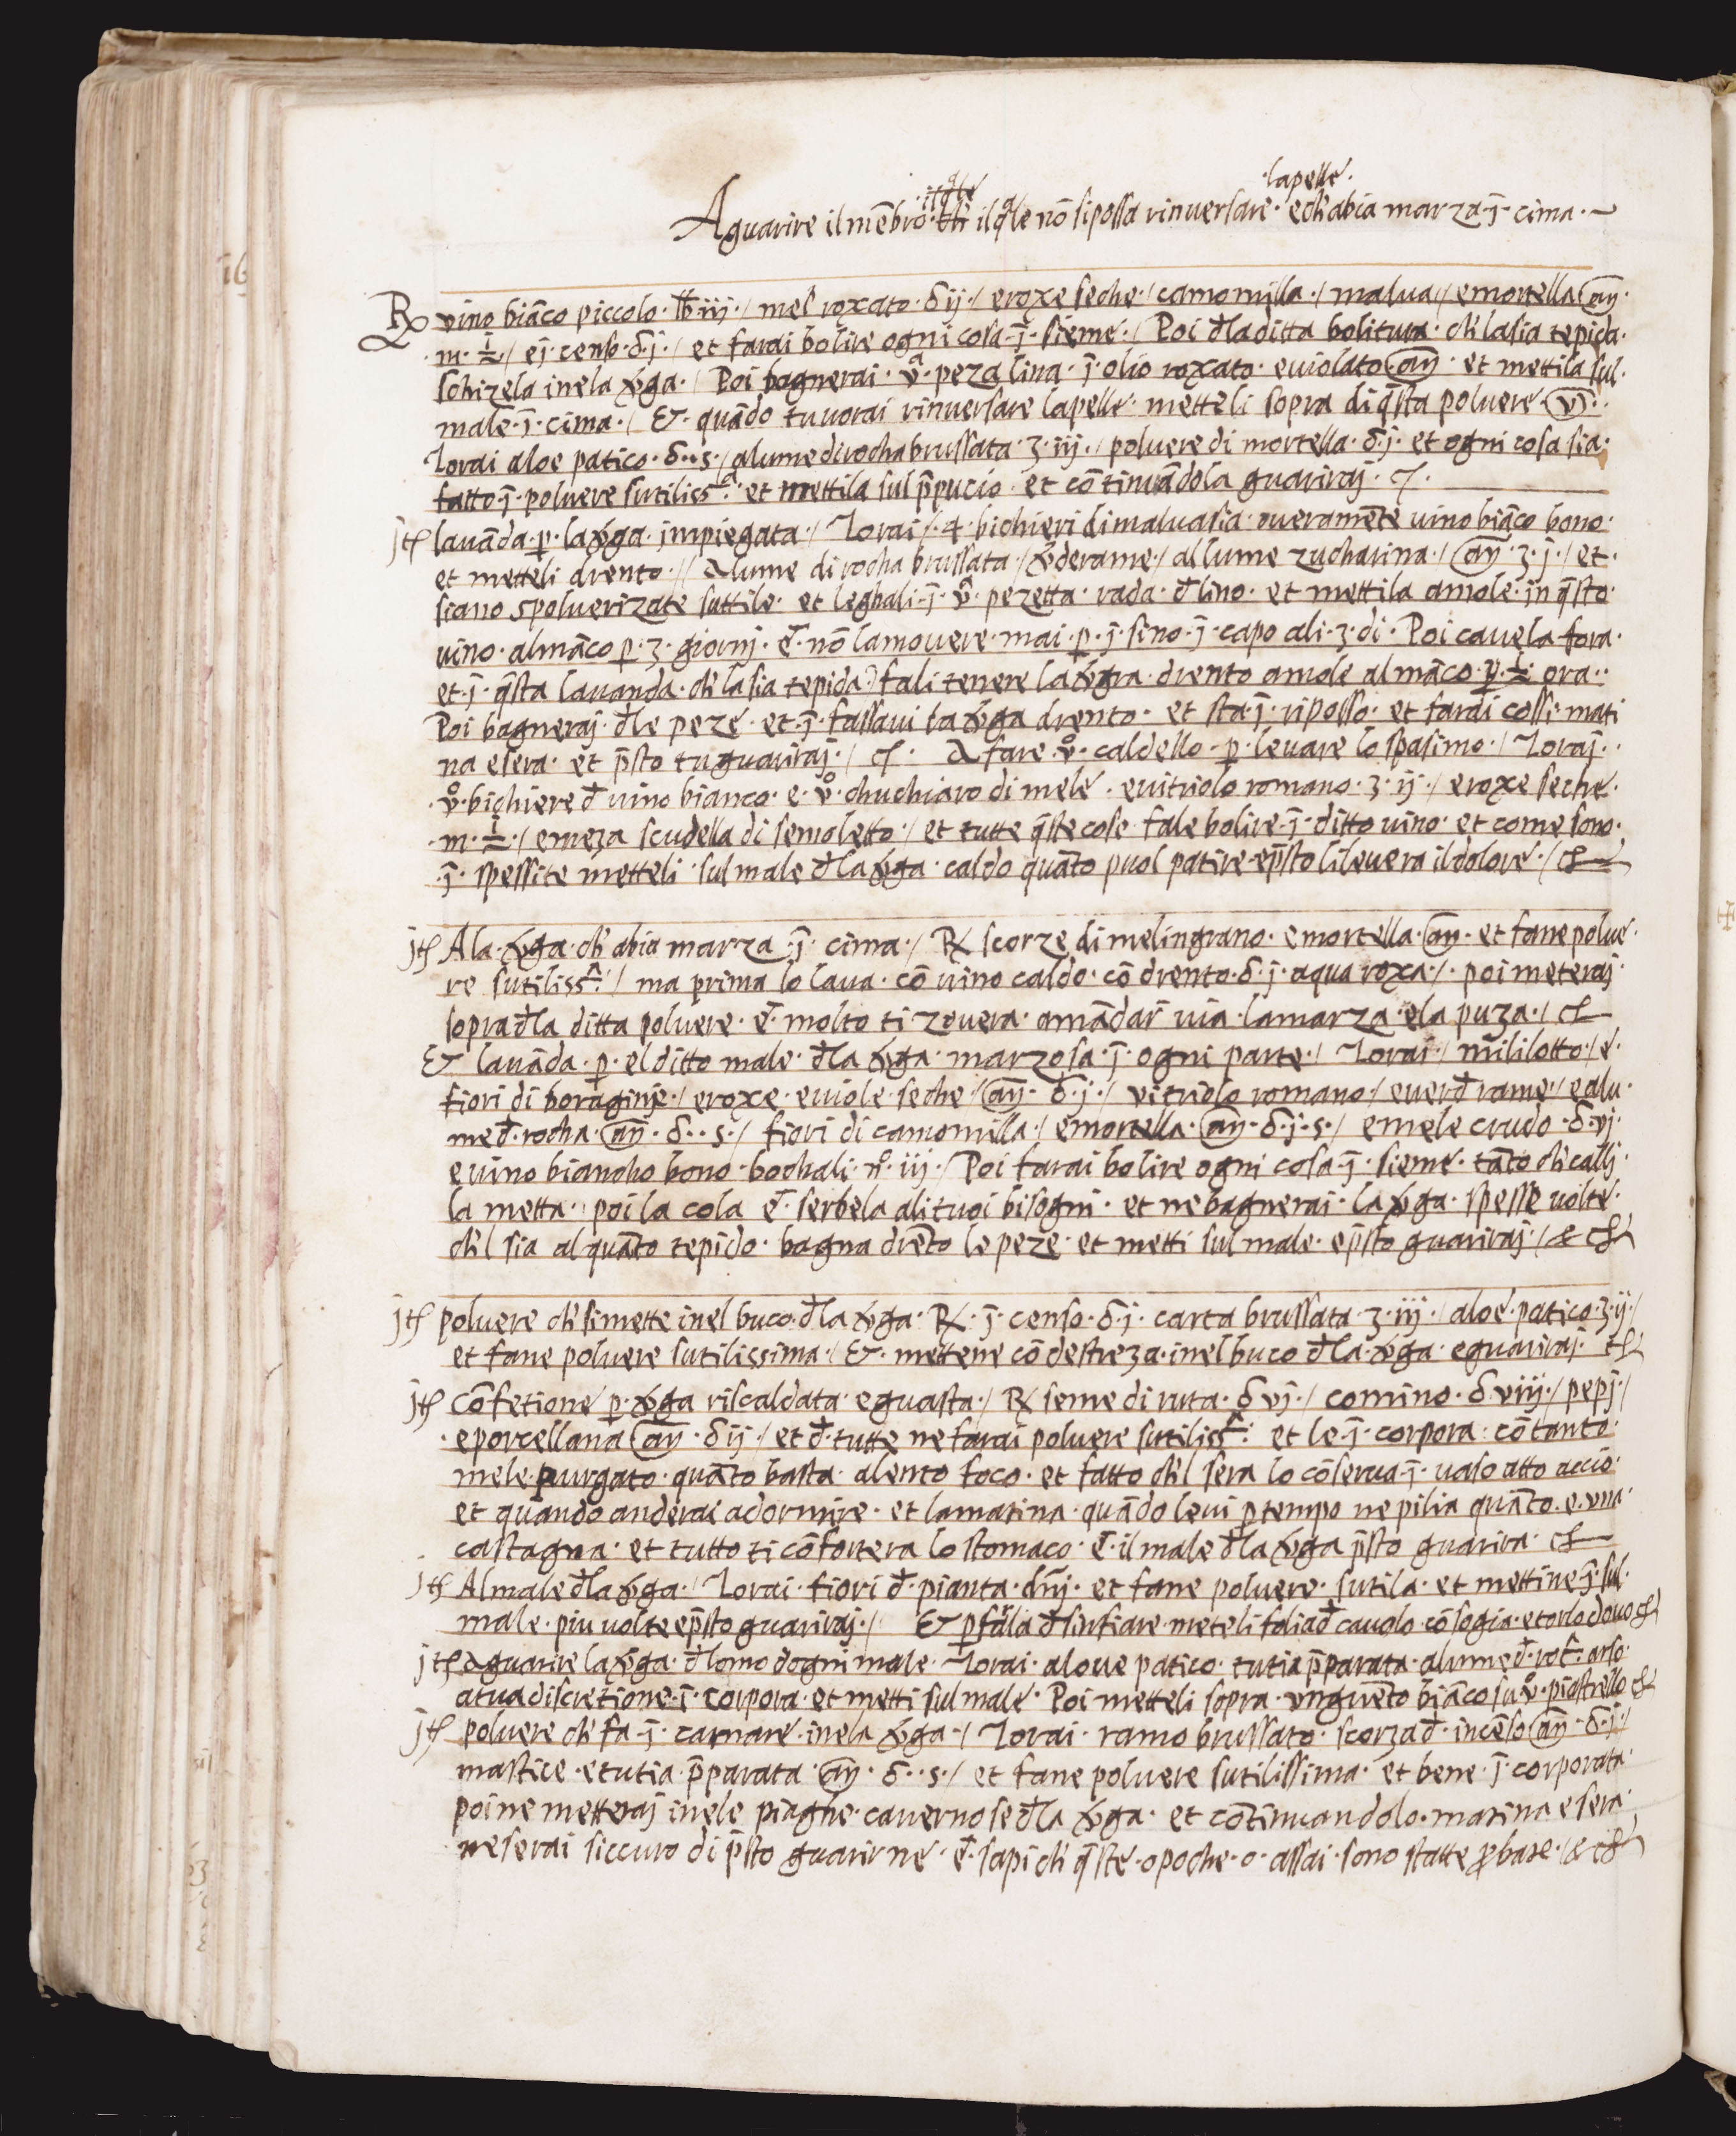 ·lapelle·
·ilqͣle
A guarire il mẽbro· ilqͣle nõ si possa rinuersare· ech̓ abia marza·ȷ̃· cima·~
℞ vino biãco piccolo· ℔ iij·/ mel roxato· δ ij·/ e roxe seche·/ camomilla·/ malua·/ e mortella añ·
·m·½·/ eȷ̃· censo·δ·j·/ et farai bolire ogni cosa·ȷ̃· sieme·/ Poi đla ditta bolitura· ch̓ la sia tepida·
schizela inela v̓ga·/ Poi bagnerai· v̊ͣ· peza lina· ȷ̃· olio roxato· e uiolato· añ· et mettila sul·
male·ȷ̃· cima·/ &· quãdo tu uorai rinuersare la pelle· metteli sopra di q̃sta poluere·
Torai aloe patico· δ··s·/ alume di rocha brussata· ʒ·iij·/ poluere di mortella· δ·j· et ogni cosa sia·
fatto·ȷ̃· poluere sutilissͣ· et mettila sul p̃pucio· et cõtinuãdola guariraj·
jtƷ lauãda·ꝑ· la v̓ga· impiegata·/ Torai·/·4· bichieri di maluasia· oueramẽte uino biãco bono·
et metteli drento·// alume di rocha brussata·/ v̓derame·/ allume zucharina·/ añ·ʒ·j·/ et·
siano spoluerizate suttile· et leghali·ȷ̃· v̊ͣ· pezetta· rada· đ lino· et mettila amole·in q̃sto·
uino· almãco ꝑ·3· giornj· &· nõ la mouere· mai·ꝑ·ȷ̃· sino·ȷ̃· capo ali·3·di· Poi cauela fora·
et·ȷ̃· q̃sta lauanda· ch̓ la sia tepida· fali tenere la v̓gra· drento amole almãco·ꝑ·½· ora··
Poi bagneraj· đle peze· et·ȷ̃· fassaui la v̓ga drento· et sta·ȷ̃· riposso· et farai cossi mati
na e sera· et p̃sto tu guariraj·/ A fare· v̊· caldello· ꝑ· leuare lo spasimo·/ Toraj··
·v̊· bichiere đ uino bianco· e· v̊· chuchiaro di mele· e uitriolo romano· ʒ·ij·/ e roxe seche·
·m·½·/ e meza scudella di semoletto·/ et tutte q̃ste cose fale bolire·ȷ̃· ditto uino· et come sono·
·ȷ̃· spessite metteli sul male đla v̓ga· caldo quãto puol patire· e p̃sto li leuera il dolore·/
jtƷ Ala· v̓ga· ch̓ abia marza·ȷ̃· cima·/ ℞ scorze di melingrano· e mortella· añ· et fane polue·
re sutilissͣ·/ ma prima lo laua· cõ uino caldo· cõ drento·δ·j· aqua roxa·/· poi meteraj·
sopra đla ditta poluere· &· molto ti zouera· a mãdar̃ uia· la marza· e la puza·/
& lauãda·ꝑ· el ditto male· đla v̓ga· marzosa·ȷ̃· ogni parte·/ Torai·/ mililotto·/ e·
fiori di boraginj·/ e roxe· e uiole· seche·/ añ· δ·j·/ vitriolo romano·/ e uerđrame·/ e alu·
me đ· rocha· añ· δ··s·/ fiori di camomilla·/ e mortella· añ· δ·j·s·/ e mele crudo· δ·vj·
e uino biancho bono· bochali· n̊· iij·/ Poi farai bolire ogni cosa·ȷ̃· sieme· tãto ch̓ callj·
la metta· poi la cola &· serbela ali tuoi bisogni· et ne bagnerai· la v̓ga· spesse uolte·
ch̓l sia alquãto tepido· bagna drẽto le peze· et metti sul male· e p̃sto guariraj·/ &
jtƷ poluere ch̓ si mette inel buco đla v̓ga· ℞·ȷ̃· censo·δ·j· carta brussata·ʒ·iij·/ aloe·patico·ʒ·ij·/
et fane poluere sutilissima·/ &· mettene cõ destreza· inel buco đla· v̓ga· e guariraj·
jtƷ Cõfetione ꝑ· v̓ga riscaldata e guasta·/ ℞ seme di ruta· δ vj·/ comino· δ viij·/ pepj·/
·e porcellana añ· δ ij·/ et đ· tutte ne farai poluere sutilissͣ· et le·ȷ̃· corpora· cõ tanto·
mele· purgato· quãto basta· a lento foco· et fatto ch̓l sera lo cõserua·ȷ̃· uaso atto a ccio·
et quando anderai a dormire· et la matina· quãdo leui ꝑ tempo ne pilia quãto· e· vna·
castagna· et tutto ti cõfortera lo stomaco· &· il male đla v̓ga p̃sto guarira·
jtƷ Al male đla v̓ga·/ Torai· fiori đ· pianta· et fane poluere· sutila· et mettine·ȷ̃· sul·
male· piu uolte e p̃sto guariraj·/ & ꝑ farla đsinfiare· meteli folia đ cauolo cõ sogia· e torlo douo
jtƷ a guarire la v̓ga· đ lomo dogni male· Torai· aloue patico· tutia p̃parata· alume đ· roc̃· arso·
a tua discretione·ȷ̃· corpora· et metti sul male· Poi metteli sopra· vnguẽto biãco su· v̊· piastrello
jtƷ poluere ch̓ fa·ȷ̃· carnare· inela v̓ga·/ Torai· ramo brussato· scorza đ· incẽso añ· δ·j·/
mastice· e tutia p̃parata· añ· δ··s·/ et fane poluere sutilissima· et bene·ȷ̃· corporata·
poi ne metteraj inele piaghe· cauernose đla v̓ga· et cõtinuandolo· matina e sera·
ne serai siccuro di p̃sto guarirne· &· sapi ch̓ q̃ste· o poche· o· assai· sono statte ꝓbate·/ &